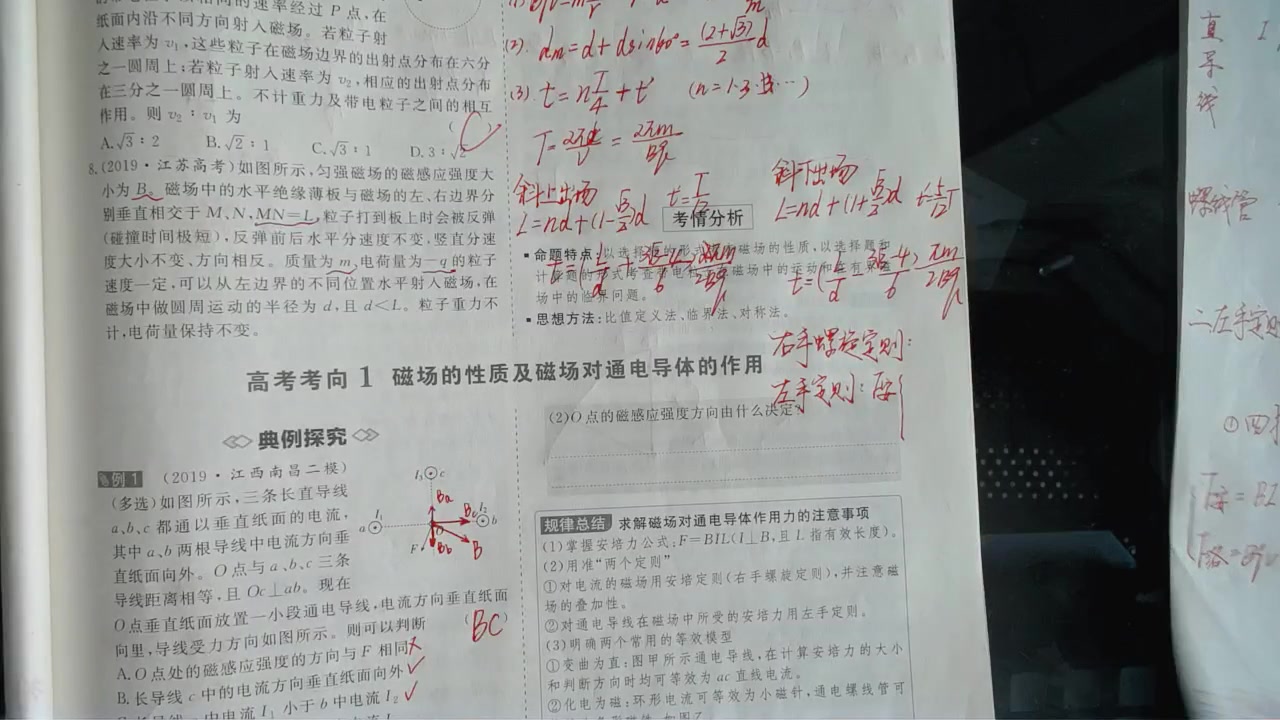 相同的速率经过 P 点,在
纸面内沿不同方向射入磁场。若粒子射
入速率为 v₁,这些粒子在磁场边界的出射点分布在六分
之一圆周上;若粒子射入速率为 v₂,相应的出射点分布
在三分之一圆周上。不计重力及带电粒子之间的相互
作用。则 v₂ : v₁ 为 ( C )
A.√3 : 2 B.√2 : 1 C.√3 : 1 D.3 : √2
8.(2019·江苏高考)如图所示,匀强磁场的磁感应强度大
小为 B。磁场中的水平绝缘薄板与磁场的左、右边界分
别垂直相交于 M、N,MN=L,粒子打到板上时会被反弹
(碰撞时间极短),反弹前后水平分速度不变,竖直分速
度大小不变、方向相反。质量为 m、电荷量为 -q 的粒子
速度一定,可以从左边界的不同位置水平射入磁场,在
磁场中做圆周运动的半径为 d,且 d<L。粒子重力不
计,电荷量保持不变。
(2). dm=d+dsin60°=(2+√3)/2 d
(3) t=nT/4+t' (n=1·3·5…)
T=2πR/v=2πm/Bq
斜上出场 t=T/12
L=nd+(1-√3/2)d
斜下出场
L=nd+(1+√3/2)d
考情分析
命题特点:以选择题的形式考查磁场的性质,以选择题和
场中的临界问题。
思想方法:比值定义法、临界法、对称法。
右手螺旋定则:
左手定则:F安
高考考向 1 磁场的性质及磁场对通电导体的作用
典例探究
例 1 (2019·江西南昌二模)
(多选)如图所示,三条长直导线
a、b、c 都通以垂直纸面的电流,
其中 a、b 两根导线中电流方向垂
直纸面向外。O 点与 a、b、c 三条
导线距离相等,且 Oc⊥ab。现在
O 点垂直纸面放置一小段通电导线,电流方向垂直纸面
向里,导线受力方向如图所示。则可以判断 ( BC )
A.O 点处的磁感应强度的方向与 F 相同
B.长导线 c 中的电流方向垂直纸面向外
中电流 I₁ 小于 b 中电流 I₂
I₃ c
Ba
I₁
a
O
Bc
I₂
b
F
Bb
B
(2)O 点的磁感应强度方向由什么决定?
规律总结 求解磁场对通电导体作用力的注意事项
(1)掌握安培力公式:F=BIL(I⊥B,且 L 指有效长度)。
(2)用准“两个定则”
①对电流的磁场用安培定则(右手螺旋定则),并注意磁
场的叠加性。
②对通电导线在磁场中所受的安培力用左手定则。
(3)明确两个常用的等效模型
①变曲为直:图甲所示通电导线,在计算安培力的大小
和判断方向时均可等效为 ac 直线电流。
②化电为磁:环形电流可等效为小磁针,通电螺线管可
直
导
线
I
螺线管
二.左手定则
①四指
F安=BI
F洛=Bqv